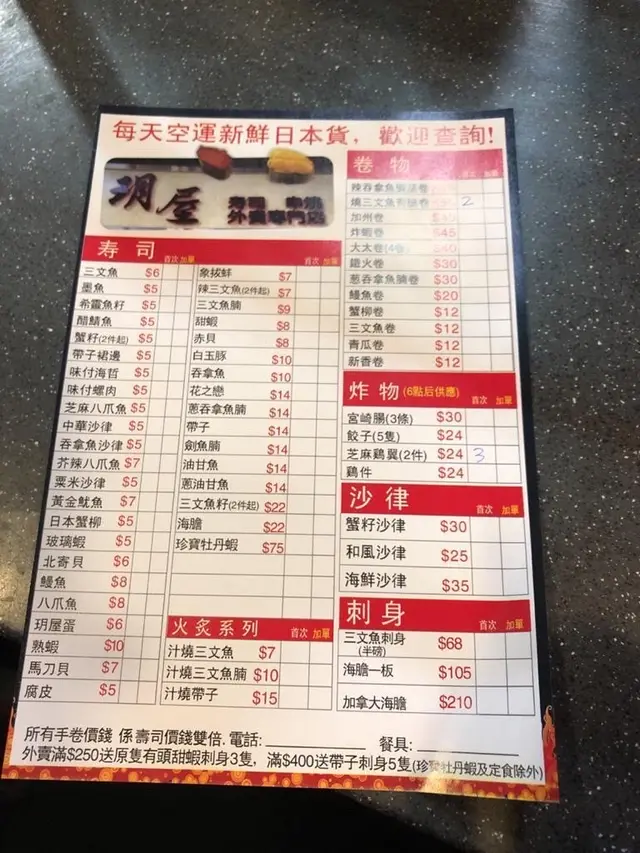 每天空運新鮮日本貨，歡迎查詢!
玥屋
寿司
外賣專門店
寿司 首次 加單 首次 加單
三文魚 $6
墨魚 $5
希靈魚籽 $5
醋鯖魚 $5
蟹籽(2件起) $5
帶子裙邊 $5
味付海哲 $5
味付螺肉 $5
芝麻八爪魚 $5
中華沙律 $5
吞拿魚沙律 $5
芥辣八爪魚 $7
粟米沙律 $5
黃金魷魚 $7
日本蟹柳 $5
玻璃蝦 $5
北寄貝 $6
鰻魚 $8
八爪魚 $8
玥屋蛋 $6
熟蝦 $10
馬刀貝 $7
腐皮 $5
象拔蚌 $7
辣三文魚(2件起) $7
三文魚腩 $9
甜蝦 $8
赤貝 $8
白玉豚 $10
吞拿魚 $10
花之戀 $14
蔥吞拿魚腩 $14
帶子 $14
劍魚腩 $14
油甘魚 $14
蔥油甘魚 $14
三文魚籽(2件起) $22
海膽 $22
珍寶牡丹蝦 $75
火炙系列 首次 加單
汁燒三文魚 $7
汁燒三文魚腩 $10
汁燒帶子 $15
卷物 首次 加單
辣吞拿魚
燒三文魚 2
加州卷
炸蝦卷 $45
大太卷(4卷) $40
鐵火卷 $30
蔥吞拿魚腩卷 $30
鰻魚卷 $20
蟹柳卷 $12
三文魚卷 $12
青瓜卷 $12
新香卷 $12
炸物(6點后供應) 首次 加單
宮崎腸(3條) $30
餃子(5隻) $24
芝麻鷄翼(2件) $24 3
鷄件 $24
沙律 首次 加單
蟹籽沙律 $30
和風沙律 $25
海鮮沙律 $35
刺身 首次 加單
三文魚刺身 $68
(半磅)
海膽一板 $105
加拿大海膽 $210
所有手卷價錢 係壽司價錢雙倍. 電話: 餐具:
外賣滿$250送原隻有頭甜蝦刺身3隻，滿$400送帶子刺身5隻(珍寶牡丹蝦及定食除外)